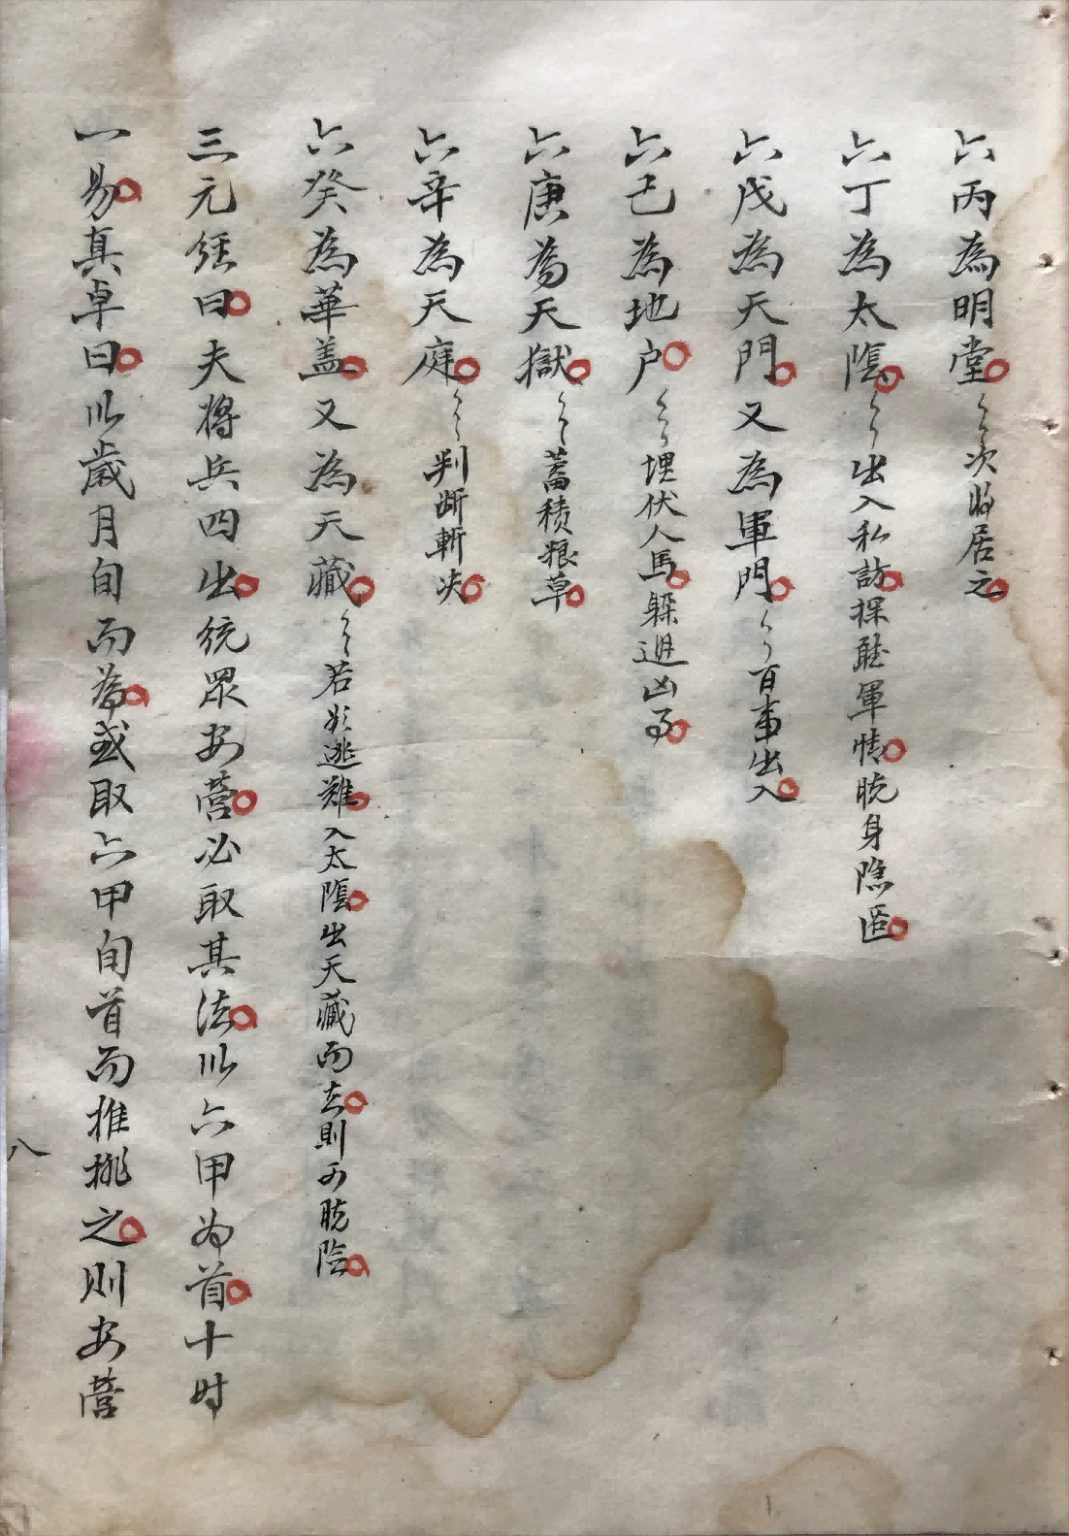 六丙為明堂〻〻次將居之
六丁為太陰〻〻出入私訪探聽軍情脫身隱匿
六戊為天門又為軍門〻〻百事出入
六己為地户〻〻埋伏人馬躲避凶
六庚為天獄〻〻蓄積粮草
六辛為天庭〻〻判斷斬决
六癸為華盖又為天藏〻〻若欲逃難入太陰出天藏而去則可脫險
三元經曰夫將兵四出統眾安營必取其法以六甲为首十时
一易真卓曰以歲月旬而為或取六甲旬首而推挑之則安營
八